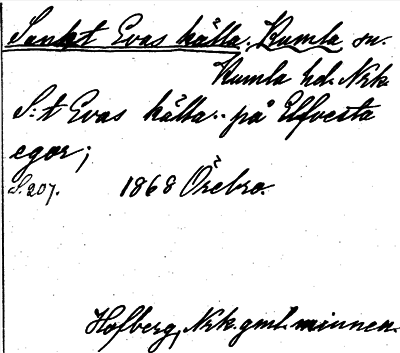 Sankt Evas källa. Kumla sn.
Kumla hd. Nrk.
S:t Evas källa.. på Elfvesta
egor;
S. 207. 1868 Örebro.
Hofberg, Nrk. gml. minnen.